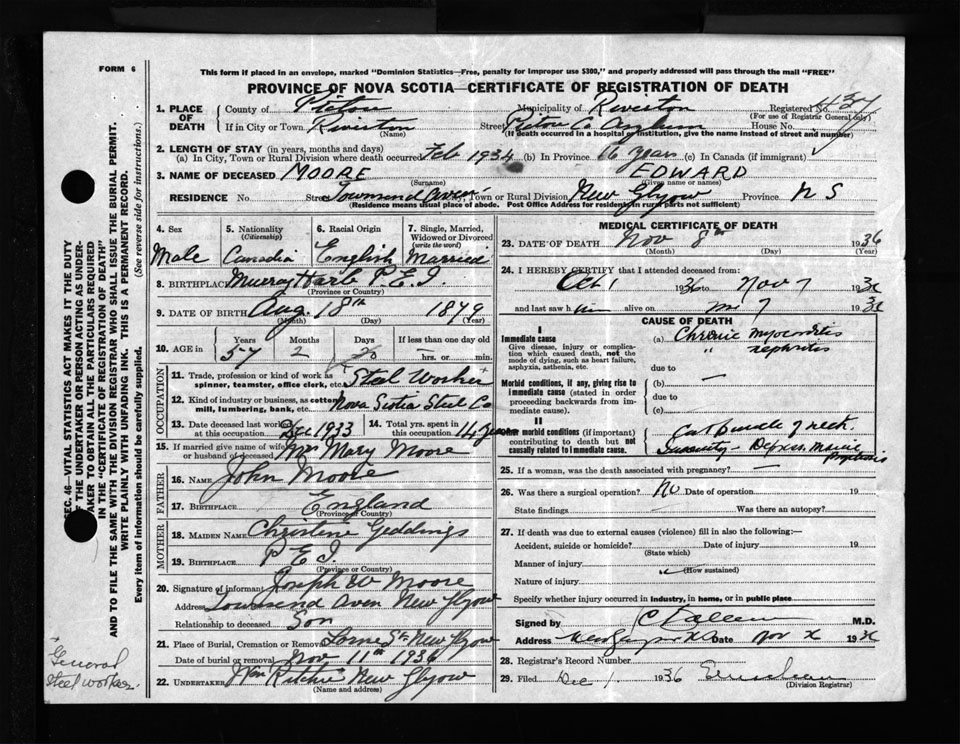 FORM 6
This form if placed in an envelope, marked "Dominion Statistics—Free, penalty for improper use $300," and properly addressed will pass through the mail "FREE"
PROVINCE OF NOVA SCOTIA—CERTIFICATE OF REGISTRATION OF DEATH
1. PLACE OF DEATH
County of Pictou Municipality of Riverton Registered No.
(For use of Registrar General only)
If in City or Town Riverton Street Pictou Co Asylum House No.
(Name) (If death occurred in a hospital or institution, give the name instead of street and number)
2. LENGTH OF STAY (in years, months and days)
(a) In City, Town or Rural Division where death occurred Feb 1934 (b) In Province 16 years (c) In Canada (if immigrant)
3. NAME OF DECEASED MOORE EDWARD
(Surname) (Given name or names)
RESIDENCE No. Street Townsend Aven. City, Town or Rural Division New Glgow Province N S
(Residence means usual place of abode. Post Office Address for residents in rural parts not sufficient)
4. Sex
Male
5. Nationality
(Citizenship)
Canadia
6. Racial Origin
English
7. Single, Married, Widowed or Divorced
(write the word)
Married
8. BIRTHPLACE Murray Harb P.E.I.
(Province or Country)
9. DATE OF BIRTH Aug. 18th 1879
(Month) (Day) (Year)
10. AGE in Years Months Days If less than one day old
57 2 20 hrs. or min.
OCCUPATION
11. Trade, profession or kind of work as spinner, teamster, office clerk, etc. Steel Worker
12. Kind of industry or business, as cotton mill, lumbering, bank, etc. Nova Scotia Steel Co
13. Date deceased last worked at this occupation Dec 1933
14. Total yrs. spent in this occupation 14 years
15. If married give name of wife or husband of deceased Mrs Mary Moore
FATHER
16. NAME John Moore
17. BIRTHPLACE England
(Province or Country)
MOTHER
18. MAIDEN NAME Christene Geddings
19. BIRTHPLACE P E I
(Province or Country)
20. Signature of informant Joseph W Moore
Address Townsend Aven New Glgow
Relationship to deceased Son
21. Place of Burial, Cremation or Removal Lorne St New Glgow
Date of burial or removal Nov 11th 1936
22. UNDERTAKER Wm Ritchie New Glgow
(Name and address)
MEDICAL CERTIFICATE OF DEATH
23. DATE OF DEATH Nov 8th 1936
(Month) (Day) (Year)
24. I HEREBY CERTIFY that I attended deceased from:
Oct 1 1936 to Nov 7 1936
and last saw him alive on Nov 7 1936
CAUSE OF DEATH
I
Immediate cause
Give disease, injury or complication which caused death, not the mode of dying, such as heart failure, asphyxia, asthenia, etc.
(a) Chronic myocarditis
" nephritis
due to
Morbid conditions, if any, giving rise to immediate cause (stated in order proceeding backwards from immediate cause).
(b) —
due to
(c)
II
Other morbid conditions (if important) contributing to death but not causally related to immediate cause.
Carbuncle of neck.
25. If a woman, was the death associated with pregnancy? —
26. Was there a surgical operation? No Date of operation 19
State findings Was there an autopsy?
27. If death was due to external causes (violence) fill in also the following:
Accident, suicide or homicide? Date of injury 19
(State which)
Manner of injury
(How sustained)
Nature of injury
Specify whether injury occurred in industry, in home, or in public place
Signed by M.D.
Address Date Nov 1936
28. Registrar's Record Number
29. Filed Dec 1. 1936
(Division Registrar)
SEC. 46—VITAL STATISTICS ACT MAKES IT THE DUTY OF THE UNDERTAKER OR PERSON ACTING AS UNDERTAKER TO OBTAIN ALL THE PARTICULARS REQUIRED IN THE "CERTIFICATE OF REGISTRATION OF DEATH" AND TO FILE THE SAME WITH THE DIVISION REGISTRAR WHO SHALL ISSUE THE BURIAL PERMIT.
WRITE PLAINLY WITH UNFADING INK. THIS IS A PERMANENT RECORD.
Every item of information should be carefully supplied. (See reverse side for instructions.)
General
Steel worker